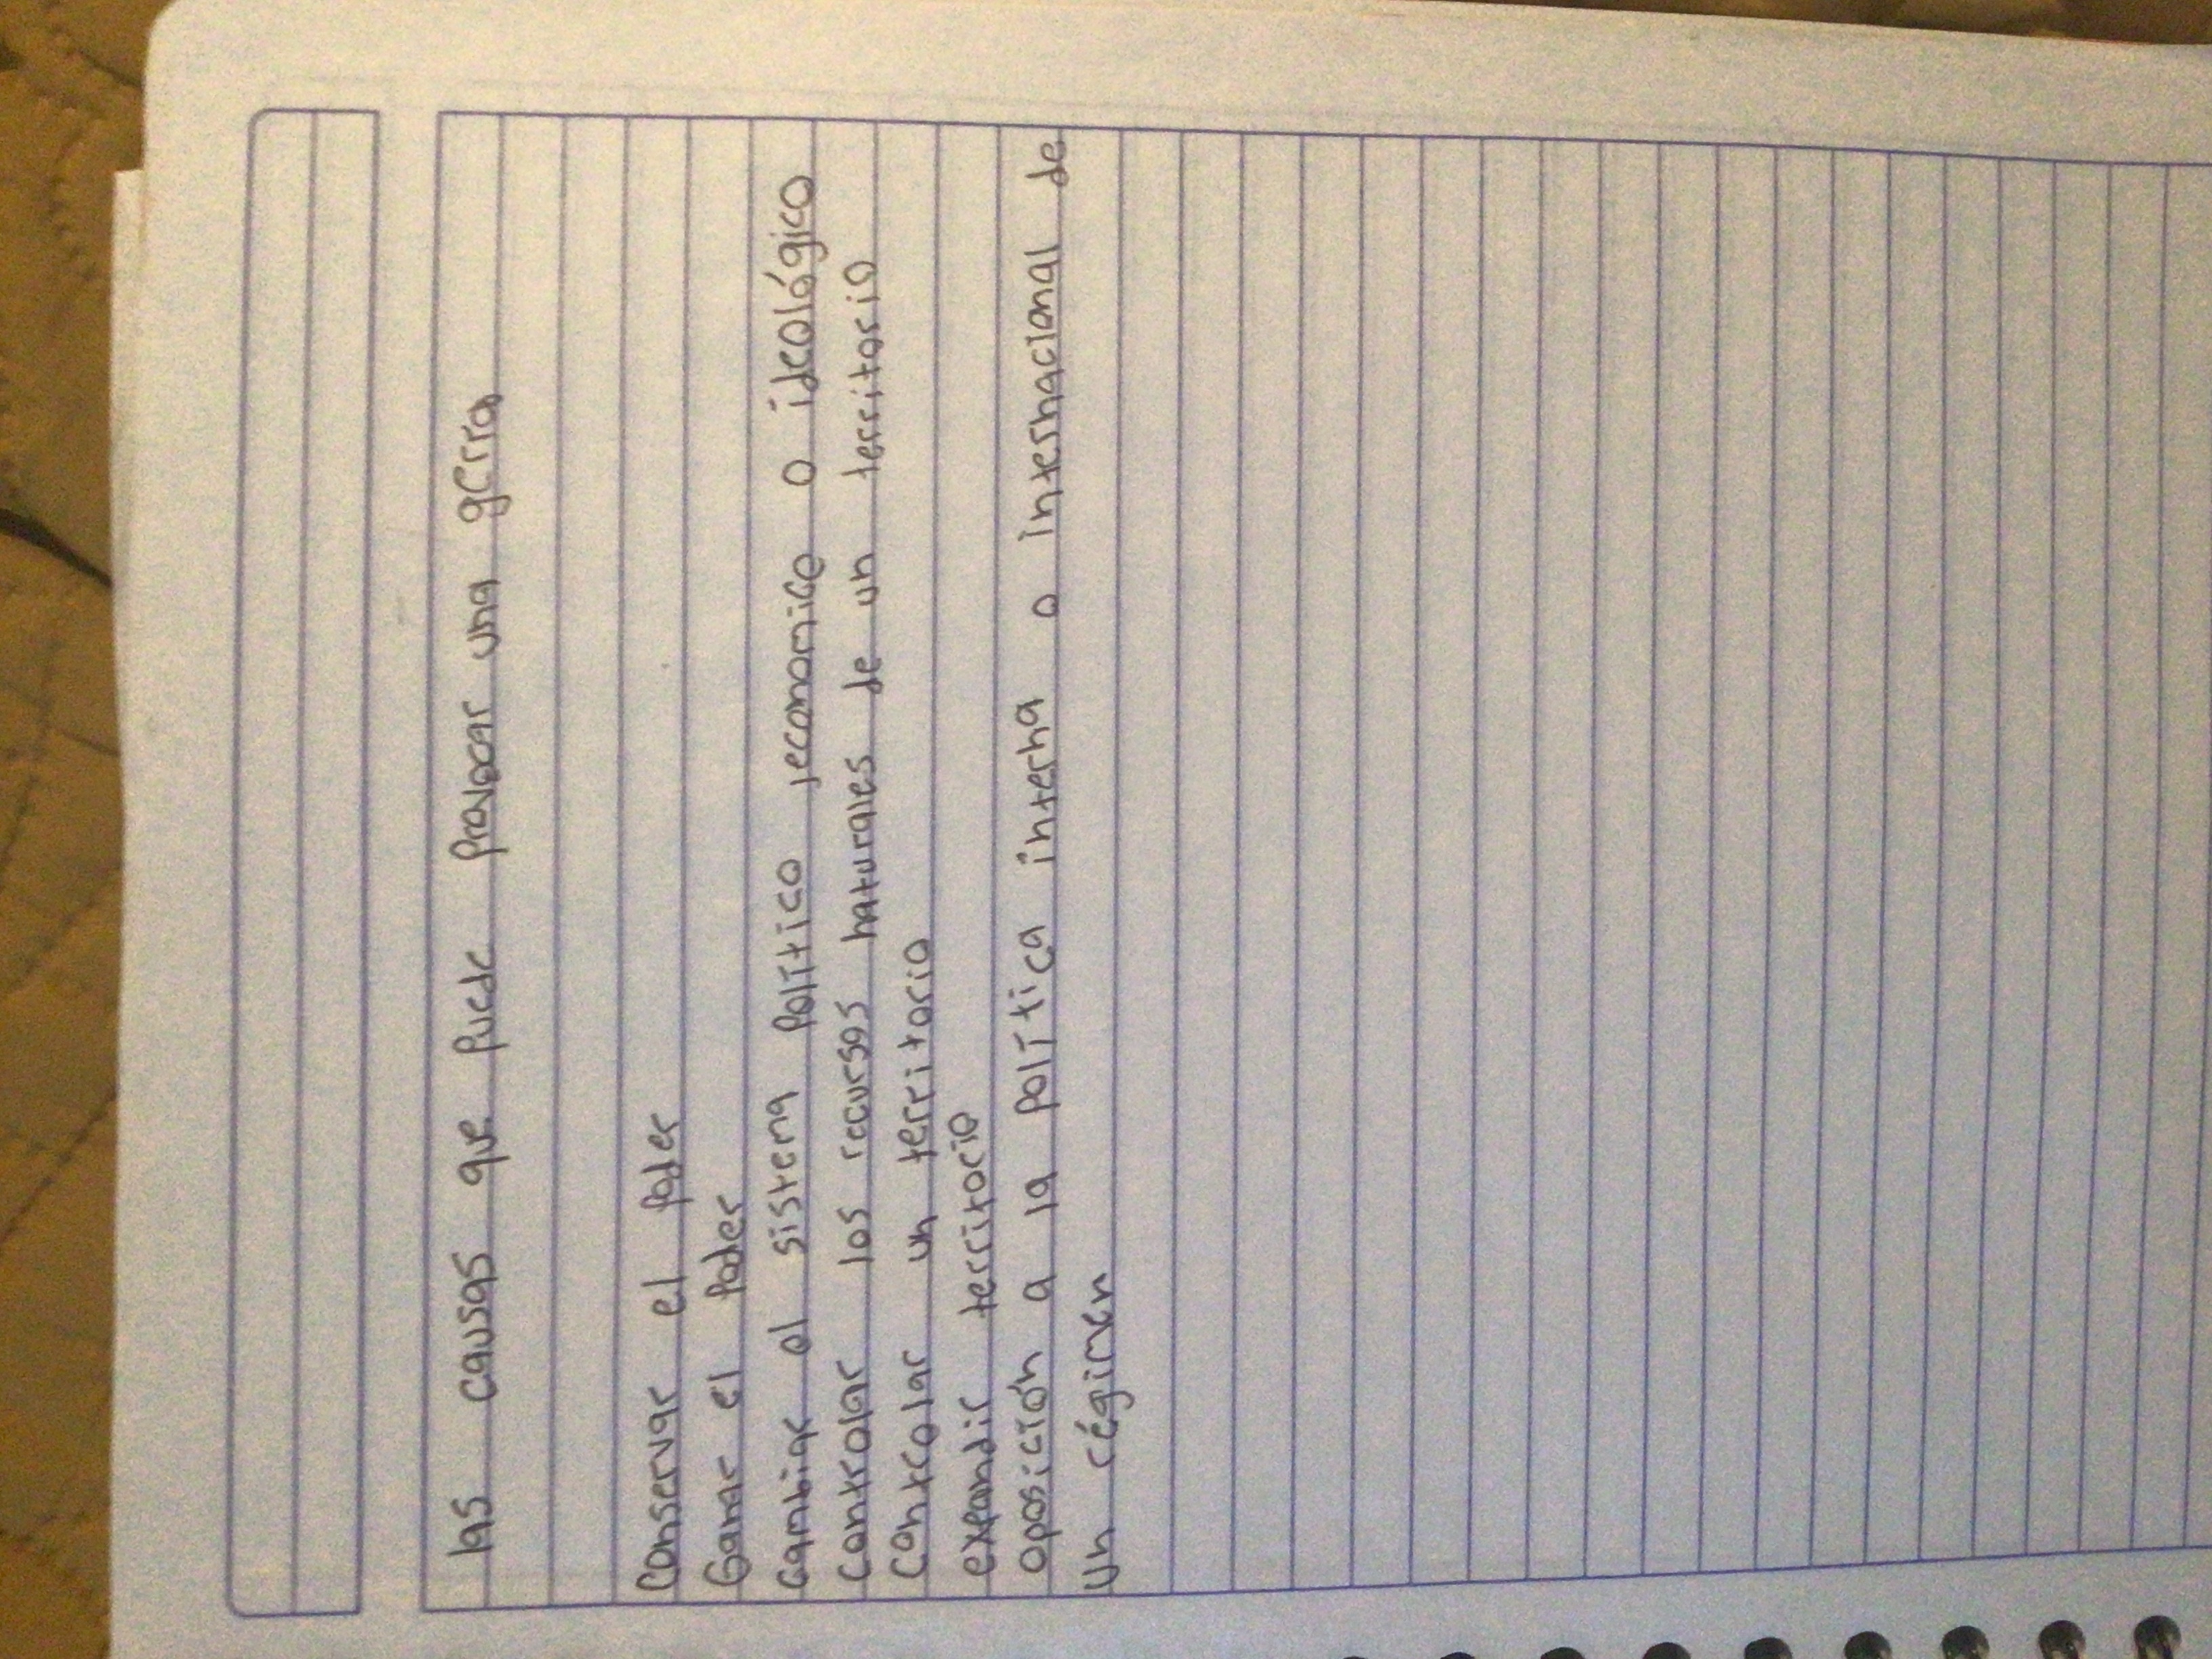 las causas que puede provocar una gerra
Conservar el poder
Ganar el poder
cambiar el sistema político, economico o ideológico
controlar los recursos naturales de un territorio
controlar un territorio
expandir territorio
oposición a la política interna o internacional de
un régimen